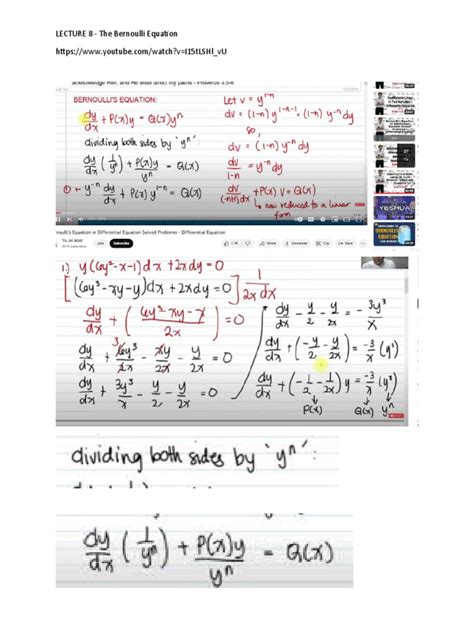 LECTURE 8 - The Bernoulli Equation
https://www.youtube.com/watch?v=I15tLSHl_vU
acknowledge Him, and He shall direct thy paths - Proverbs 3:5-6
BERNOULLI'S EQUATION:
dy/dx + P(x)y = Q(x)yⁿ
dividing both sides by 'yⁿ':
dy/dx (1/yⁿ) + P(x)y/yⁿ = Q(x)
① y⁻ⁿ dy/dx + P(x)y¹⁻ⁿ = Q(x)
Let v = y¹⁻ⁿ
dv = (1-n) y¹⁻ⁿ⁻¹ = (1-n) y⁻ⁿ dy
so,
dv = (1-n) y⁻ⁿ dy
dv/1-n = y⁻ⁿ dy
dv/(-n+1)dx + P(x) V = Q(x)
↳ now reduced to a linear
form
YESHUA
Bernoulli's Equation in Differential Equation Solved Problems - Differential Equation
Yu Jei Abat
Join
Subscribe
Share
1.) y(6y²-x-1)dx + 2xdy = 0
[(6y³-xy-y)dx + 2xdy = 0] 1/2xdx
dy/dx + (6y³-xy-y/2x) = 0
dy/dx + 3 6y³/2x - xy/2x - y/2x = 0
dy/dx + 3y³/x - y/2 - y/2x = 0
dy/dx - y/2 - y/2x = - 3y³/x
dy/dx + (-y/2 - y/2x) = -3/x (y³)
dy/dx + (-1/2 - 1/2x) y = -3/x (y³)
↓ P(x) ↓ Q(x) ↓ yⁿ
dividing both sides by 'yⁿ':
dy/dx (1/yⁿ) + P(x)y/yⁿ = Q(x)